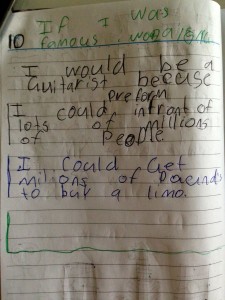 If I was
10 famous
I would be a
Guitarist becuse
I could preform infront of
lots of millions
of People.
I Could Get
millions of Pacends
to buy a limo.